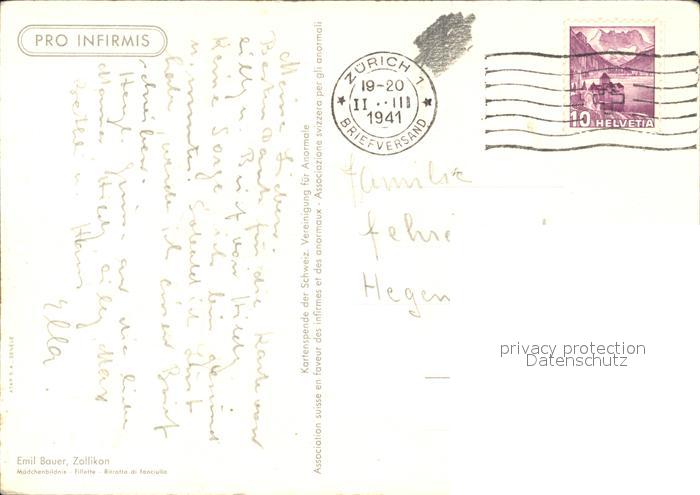 PRO INFIRMIS
Meine Lieben,
Besten Dank für die Karte von
Brief von Hildy.
Keine Sorge, ich bin gesund
u. munter. Sobald ich Lust
habe, werde ich einen Brief
schreiben.
Herzl. Grüsse an die liebe
Mama, Hildy, Max
u. Hans
Ella.
Emil Bauer, Zollikon
Mädchenbildnis - Fillette - Ritratto di fanciulla
Kartenspende der Schweiz. Vereinigung für Anormale
Association suisse en faveur des infirmes et des anormaux - Associazione svizzera per gli anormali
ZÜRICH 1
19-20
II..III
1941
BRIEFVERSAND
10 HELVETIA
Familie
Fehr
Hegen
privacy protection
Datenschutz